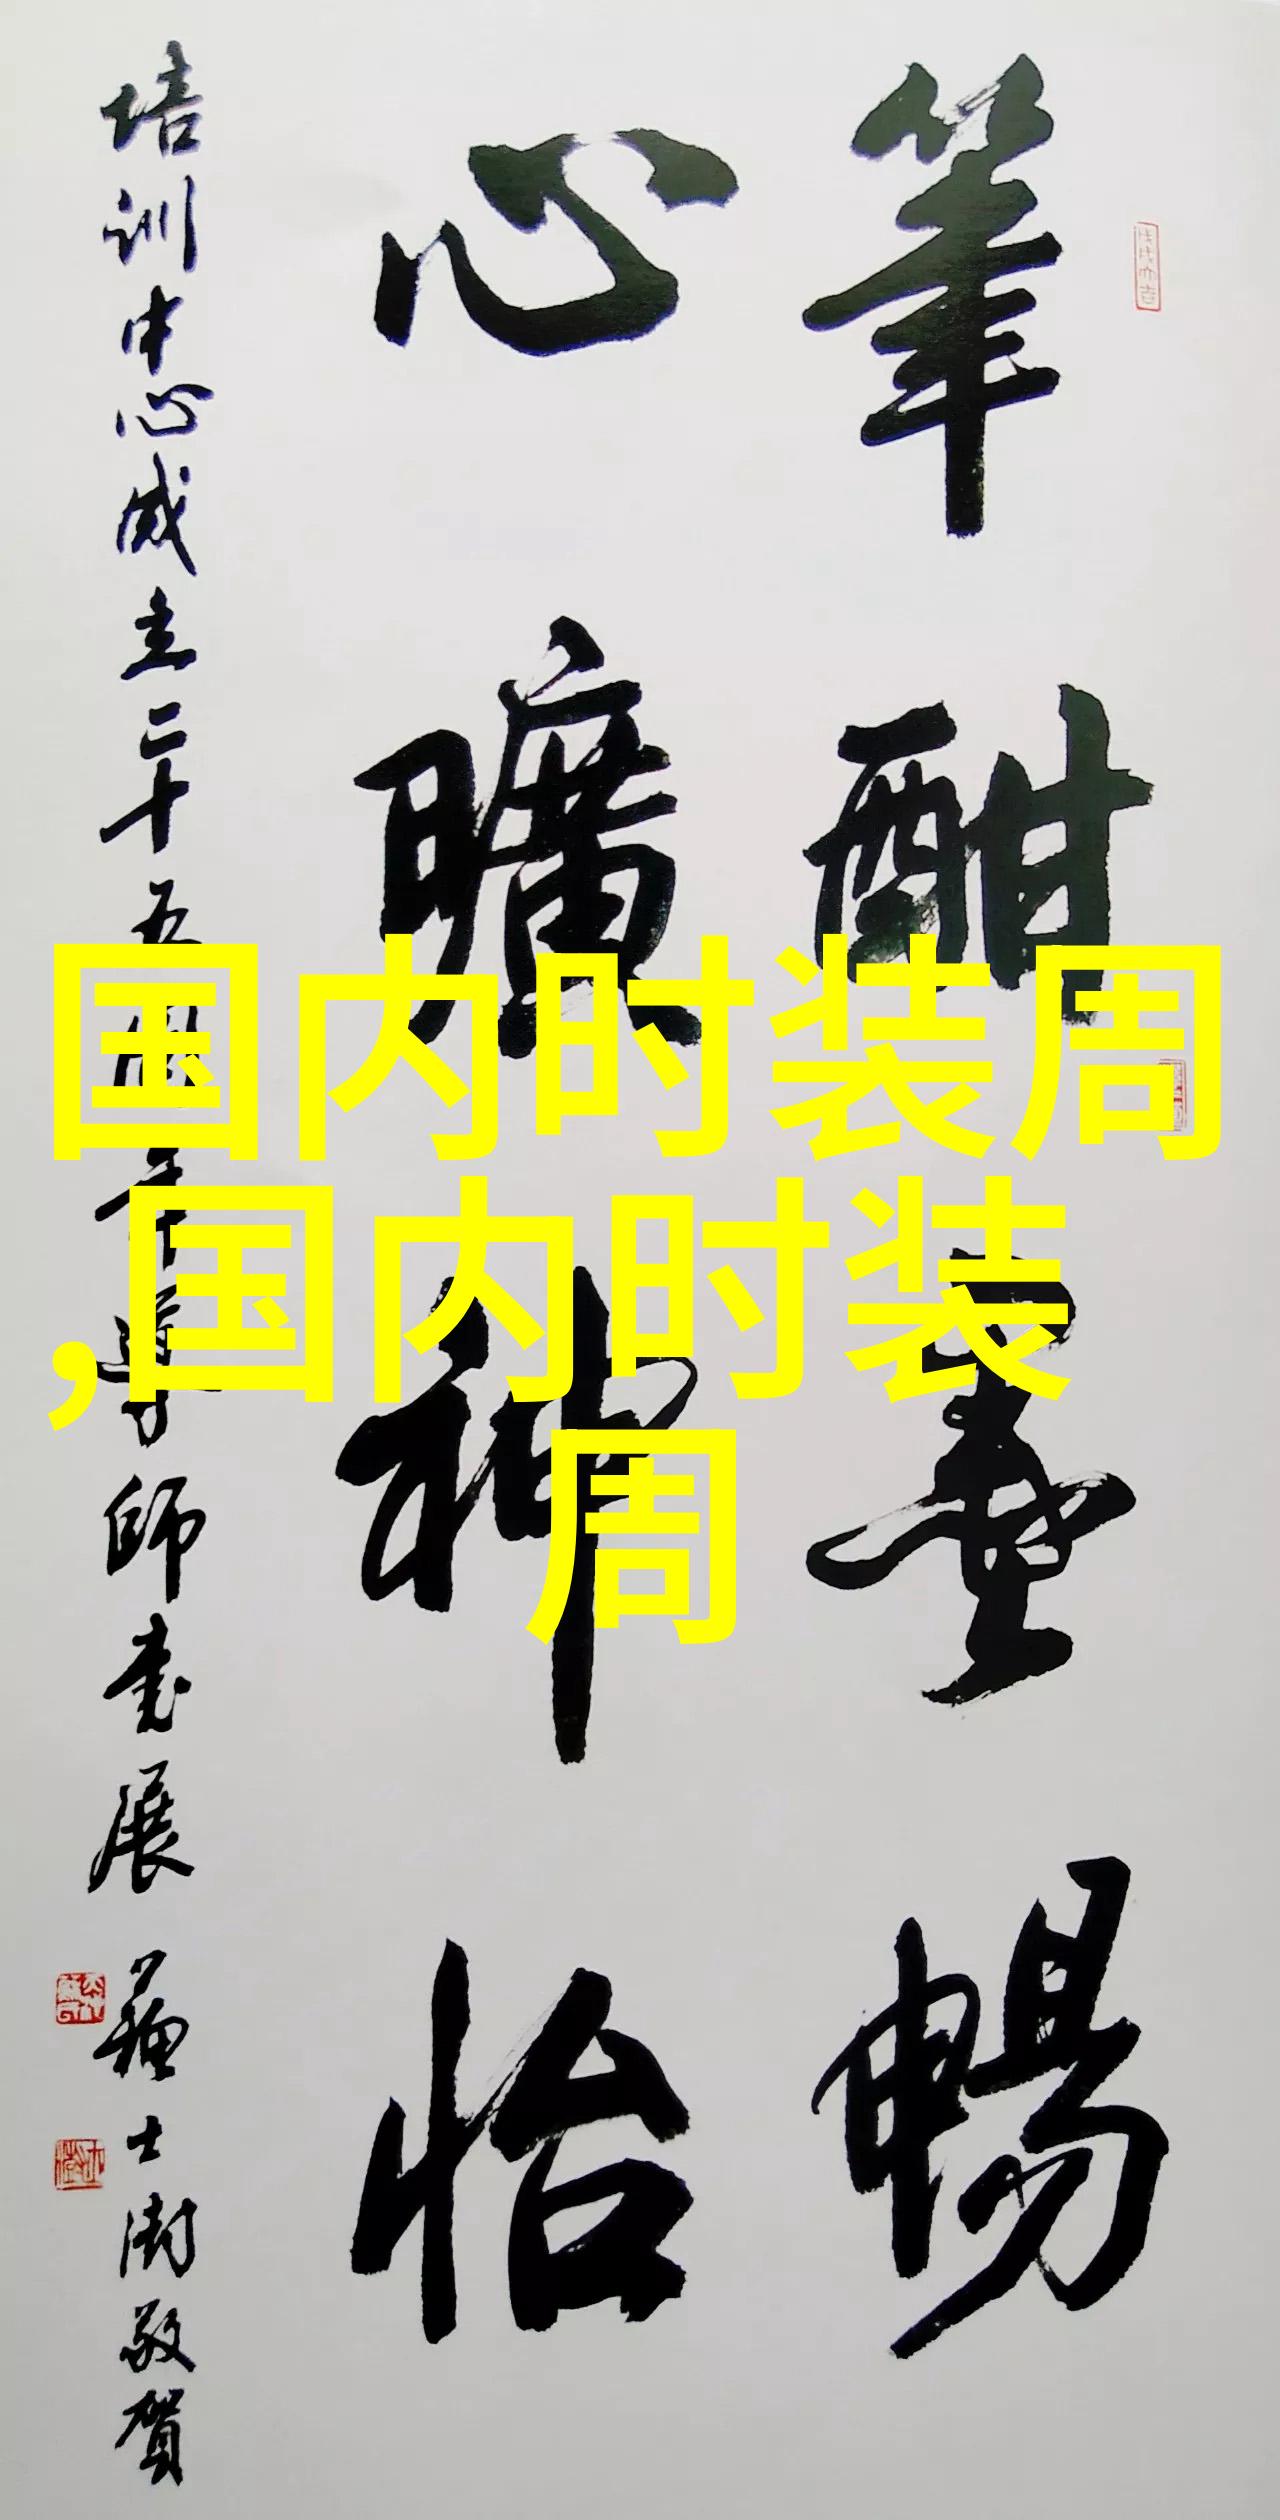 筆酣墨暢
心曠神怡
培训中心成立二十五周年導師書展 蘇士澍敬賀
国内时装周
,国内时装
周